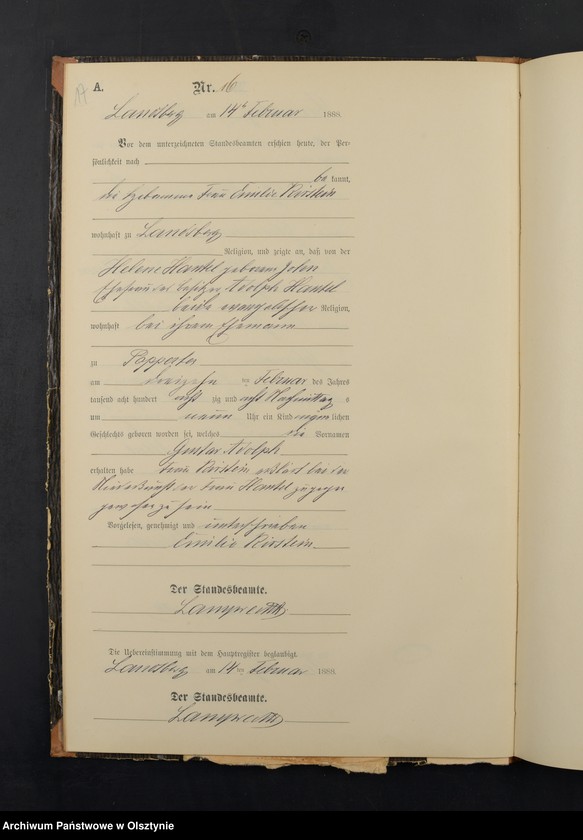 A. Nr. 16
17
Landsberg am 14t Februar 1888.
Vor dem unterzeichneten Standesbeamten erschien heute, der Per-
sönlichkeit nach
be kannt,
die Hebamme Frau Emilie Kirstein
wohnhaft zu Landsberg
Religion, und zeigte an, daß von der
Helene Hankel geborene
Ehefrau des Besitzer Adolph Hankel
beide evangelischer Religion,
wohnhaft bei ihrem Ehemann
zu Papperten
am dreizehn ten Februar des Jahres
tausend acht hundert acht zig und acht Nachmittag s
um neun Uhr ein Kind männ lichen
Geschlechts geboren worden sei, welches die Vornamen
Gustav Adolph
erhalten habe Frau Kirstein erklärt bei der
Niederkunft der Frau Hankel zugegen
gewesen zu sein
Vorgelesen, genehmigt und unterschrieben
Emilie Kirstein
Der Standesbeamte.
Die Uebereinstimmung mit dem Hauptregister beglaubigt.
Landsberg am 14 ten Februar 1888.
Der Standesbeamte.
Archiwum Państwowe w Olsztynie